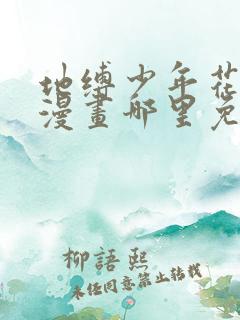 地缚少年花
漫畫哪里免
柳語熙
未经同意禁止转载